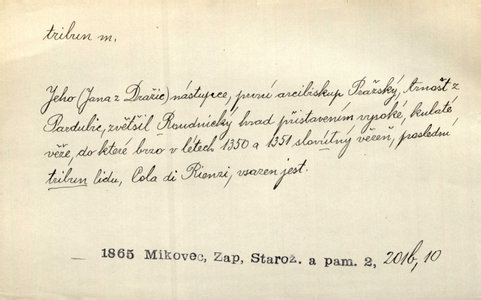 tribun m.
Jeho (Jana z Dražic) nástupce, první arcibiskup Pražský, Arnošt z
Pardubic, zvětšil Roudnický hrad přistavením vysoké, kulaté
věže, do které brzo v létech 1350 a 1351 slovutný vězeň, poslední
tribun lidu, Cola di Rienzi, vsazen jest.
— 1865 Mikovec, Zap, Starož. a pam. 2, 201b, 10